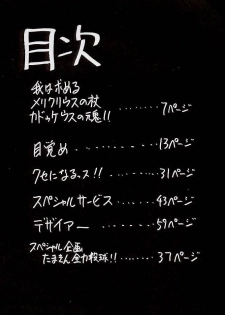 目次
我は求める
メリクリウスの杖
カドゥケウスの魂!! ・・・・・・7ページ
目覚め ・・・・・・・・・13ページ
クセになるゥス!! ・・・・・・31ページ
スペシャルサービス ・・・・・43ページ
デザイアー ・・・・・・・・59ページ
スペシャル企画
たまきん全力投球!! ・・・・・・37ページ